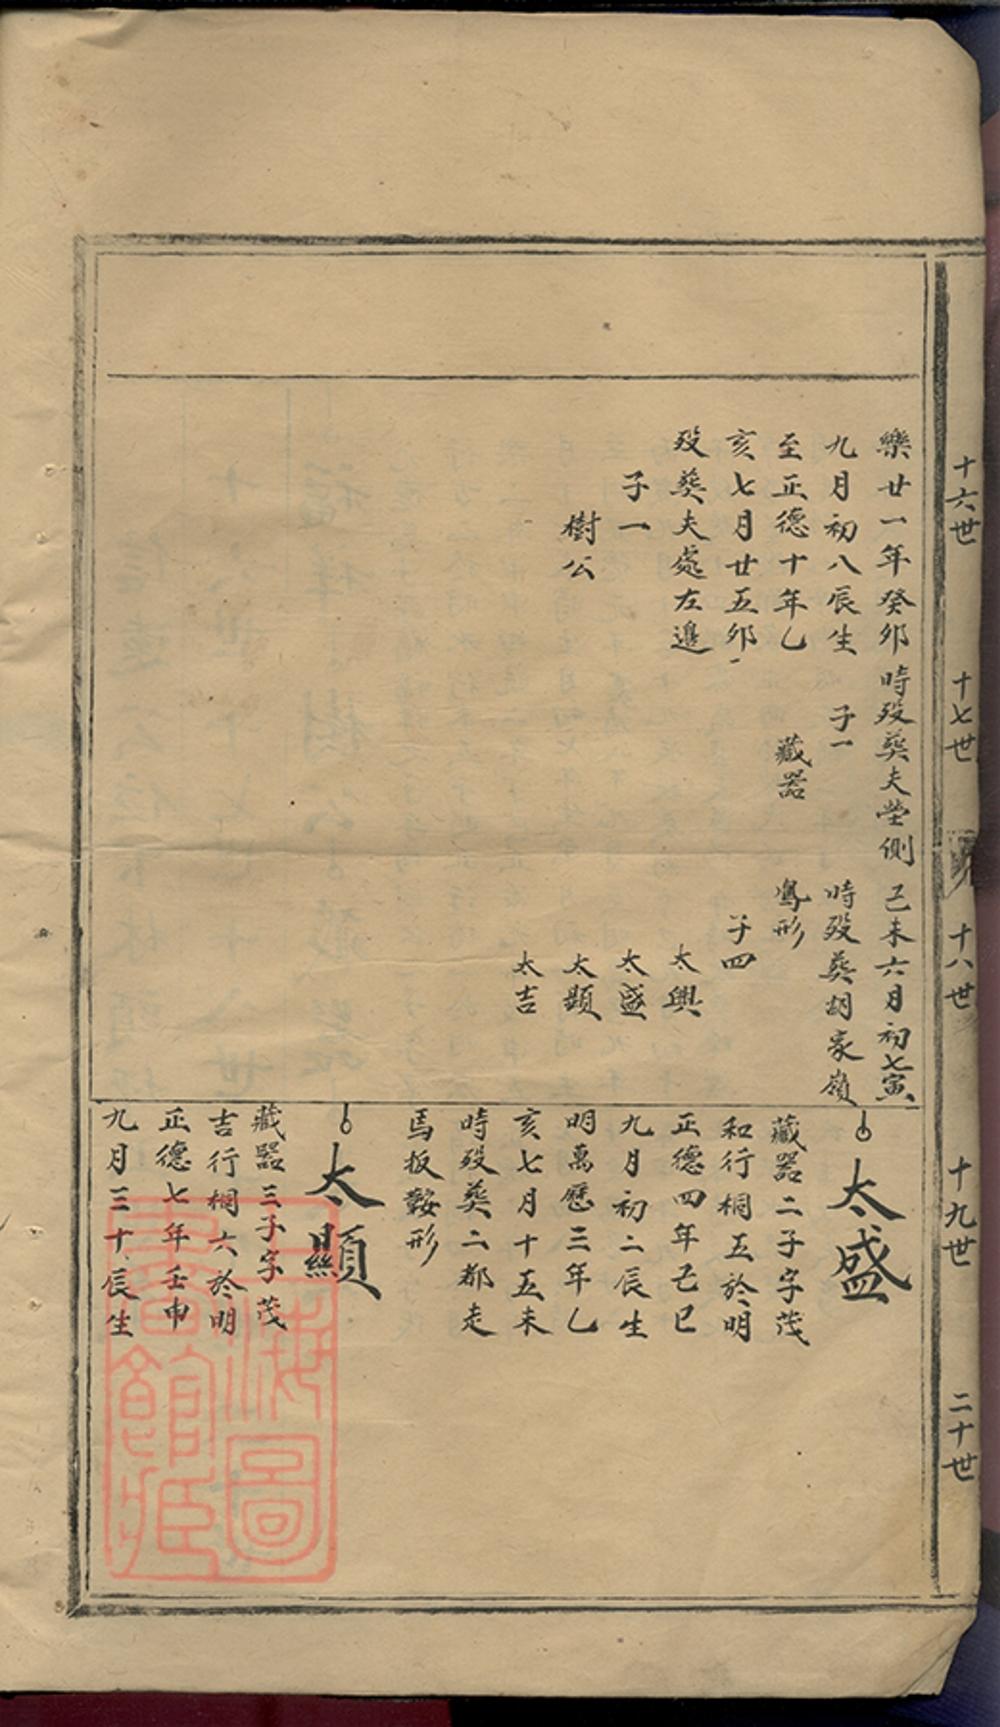 十六世
十七世
十八世
十九世
二十世
樂廿一年癸卯
九月初八辰生
至正德十年乙
亥七月廿五卯
歿葬夫處左邉
子一
樹公
時歿葬夫塋側
子一
藏器
己未六月初七寅
時歿葬胡家嶺
鳳形
子四
太興
太盛
太顕
太吉
太盛
藏器二子字茂
和行桐五於明
正德四年己巳
九月初二辰生
明萬歷三年乙
亥七月十五未
時歿葬二都走
馬扳鞍形
太顯
藏器三子字茂
吉行桐六於明
正德七年壬申
九月三十辰生
上海圖
書館藏